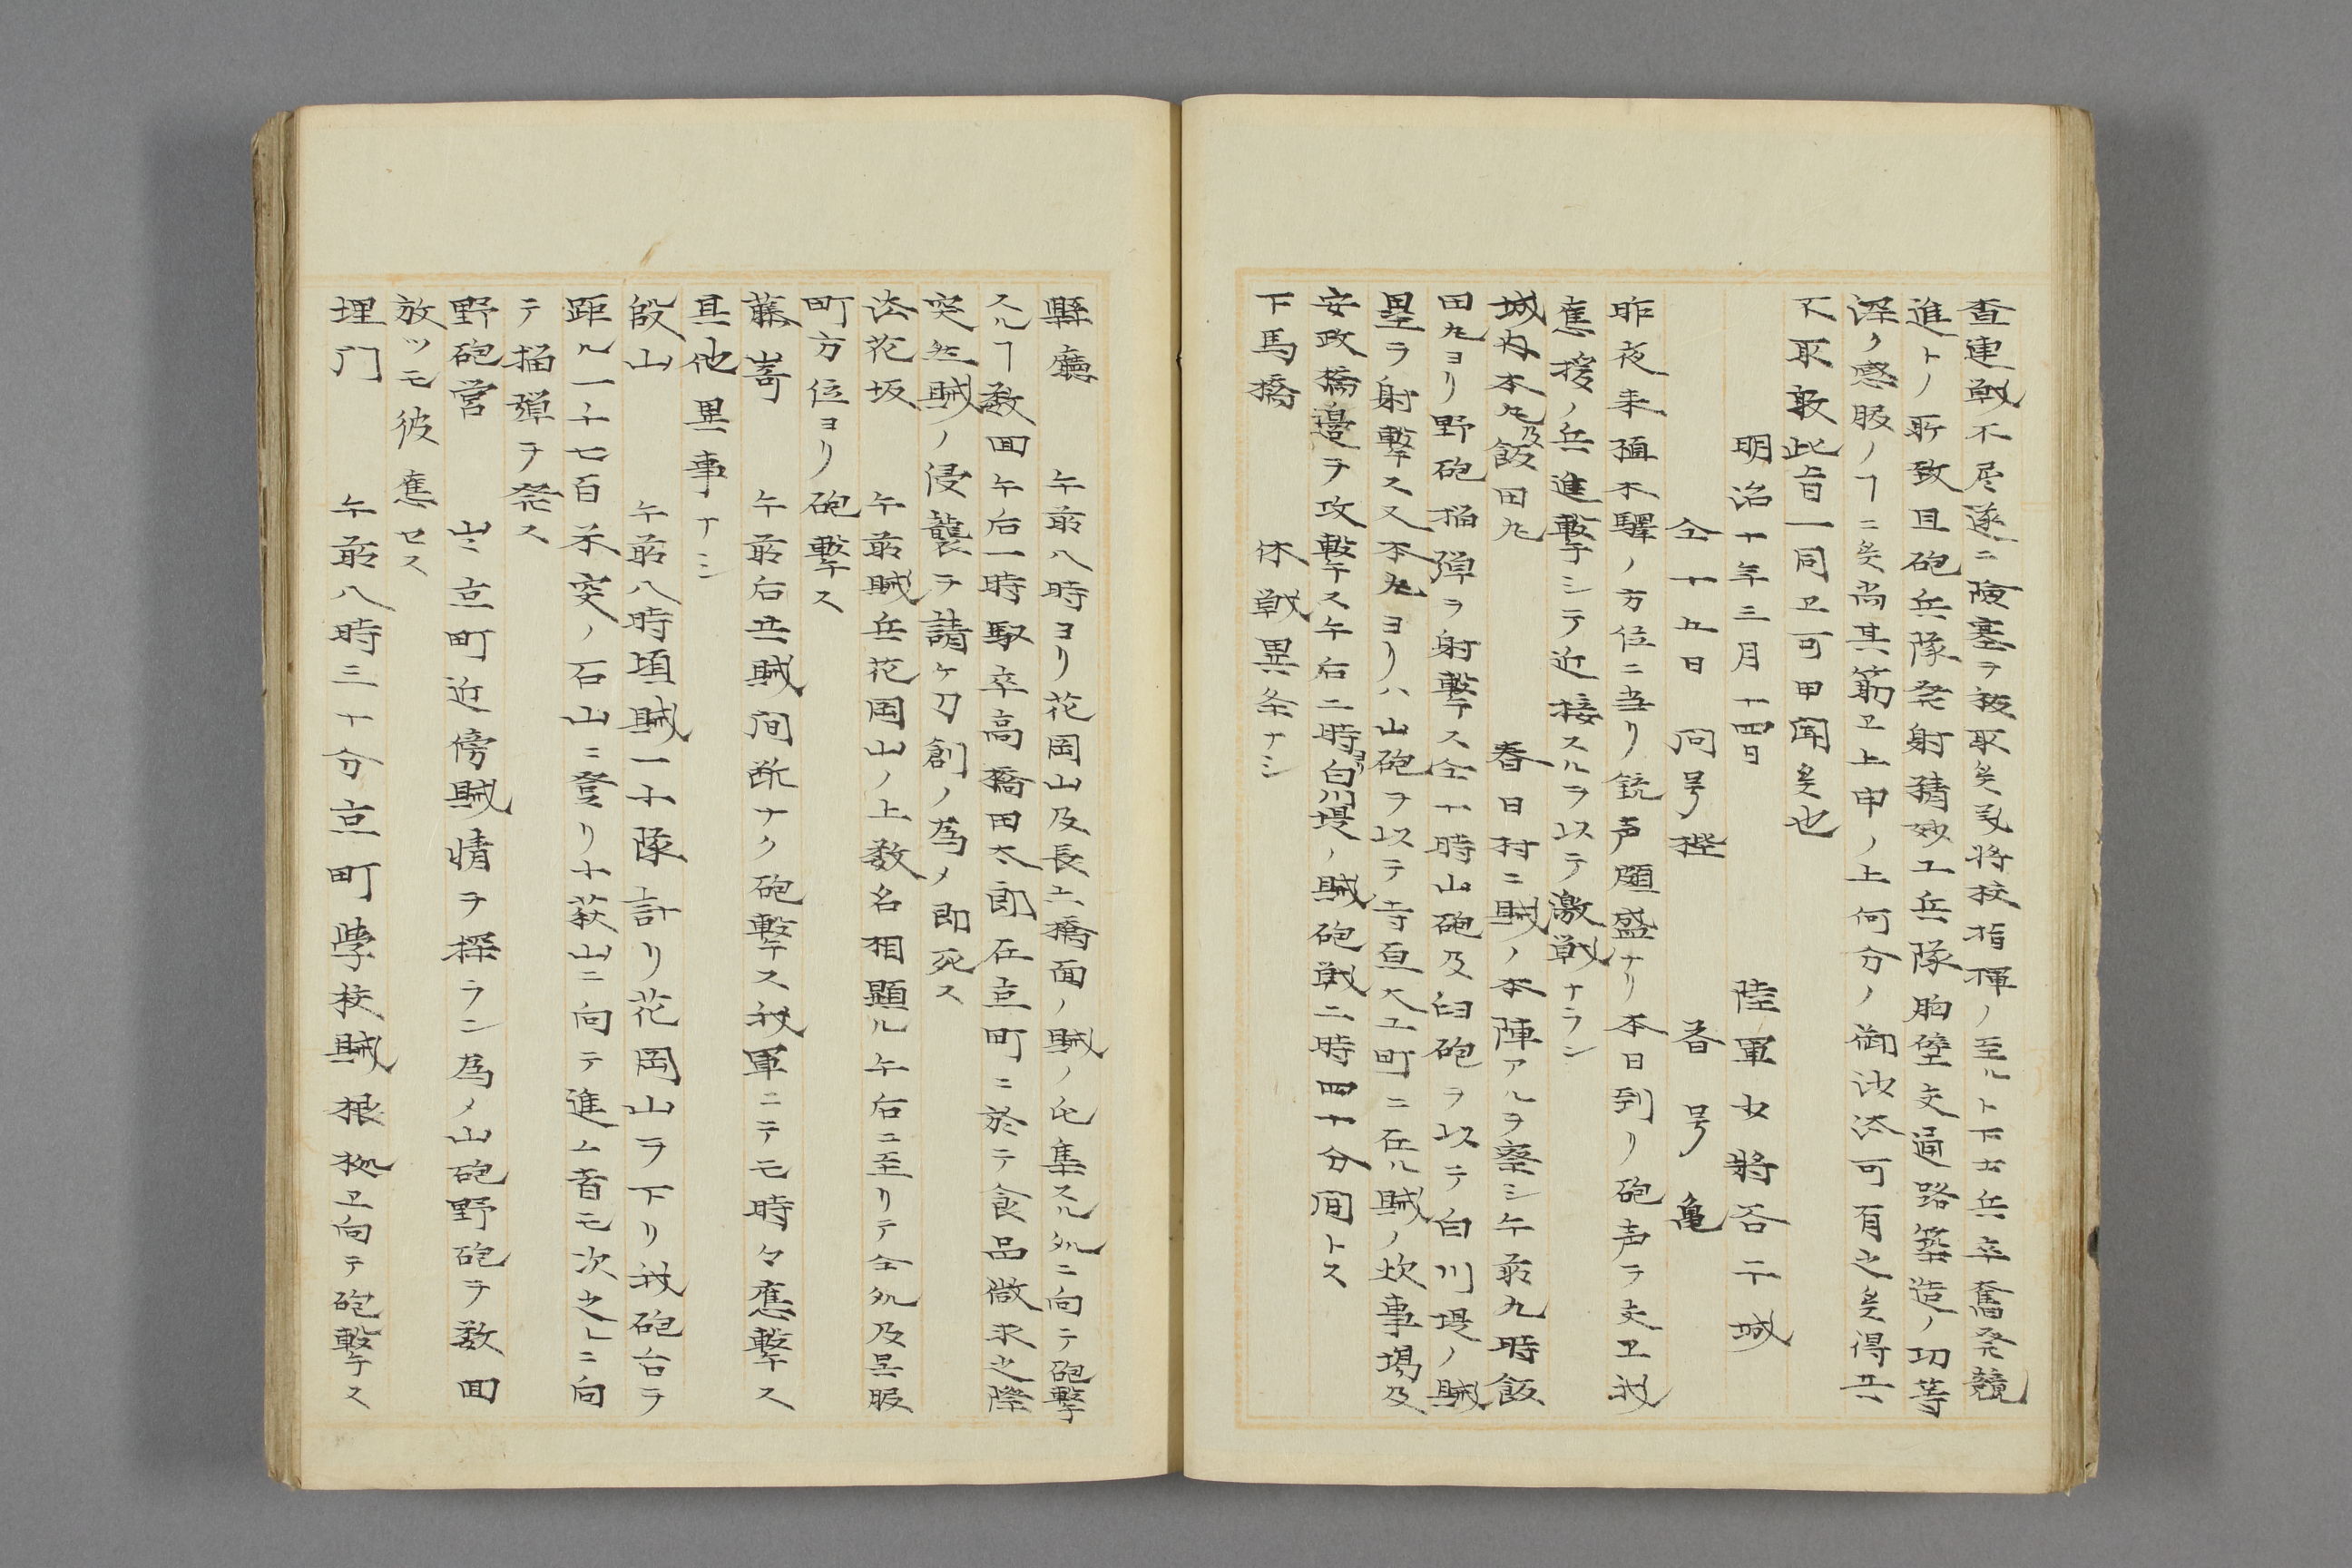 査連戦不尽遂ニ險塞ヲ抜取矣致将校指揮ノ至ルト下士兵卒奮発競
進トノ所致且砲兵隊発射精妙工兵隊胸壁交通路築造ノ功等
深ク感服ノヿニ矣尚其筋ヱ上申ノ上何分ノ御沙汰可有之矣得共
不取敢此旨一同ヱ可申聞矣也
明治十年三月十四日 陸軍少将谷干城
仝十五日 同号砲 吞号 亀
昨夜来植木驛ノ方位ニ当リ銃声頗盛ナリ本日到リ砲声ヲ交ヱ我
應援ノ兵進撃シテ近接スルヲ以テ激戦ナラン
城内本丸及飯田丸 春日村ニ賊ノ本陣アルヲ察シ午前九時飯
田丸ヨリ野砲榴弾ヲ射撃ス仝十時山砲及臼砲ヲ以テ白川堤ノ賊
塁ヲ射撃ス又本丸ヨリハ山砲ヲ以テ寺亘大工町ニ在ル賊ノ炊事場及
安政橋邉ヲ攻撃ス午后二時白川堤ノ賊砲戦二時四十分間トス
下馬橋 休戦異条ナシ
縣廳 午前八時ヨリ花岡山及長六橋面ノ賊ノ屯集スル処ニ向テ砲撃
スルヿ数回午后一時馭卒高橋田太郎在京町ニ於テ食品徴求之際
突然賊ノ侵襲ヲ請ケ刀創ノ為メ即死ス
法花坂 午前賊兵花岡山ノ上数名相顕ル午后ニ至リテ仝処及呉服
町方位ヨリ砲撃ス
藤嵜 午前后共賊间断ナク砲撃ス我軍ニテモ時々應撃ス
其他異事ナシ
段山 午前八時頃賊一小隊計リ花岡山ヲ下リ我砲台ヲ
距ル一千七百米突ノ石山ニ登リ小萩山ニ向テ進ム者モ次之レニ向
テ榴弾ヲ発ス
野砲営 出京町近傍賊情ヲ探ラン為メ山砲野砲ヲ数回
放ツモ彼應セス
埋门 午前八時三十分京町学校賊根拠ヱ向テ砲撃ス